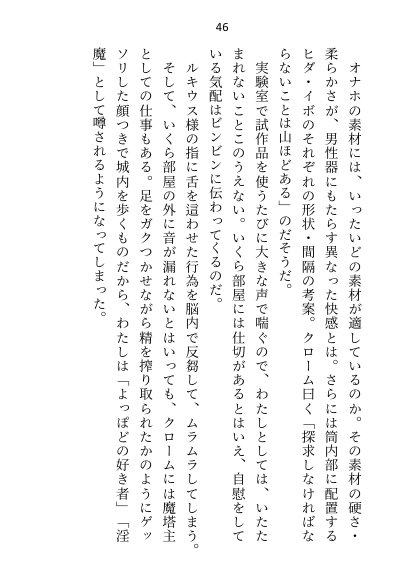 46
オナホの素材には、いったいどの素材が適しているのか。その素材の硬さ・
柔らかさが、男性器にもたらす異なった快感とは。さらには筒内部に配置する
ヒダ・イボのそれぞれの形状・間隔の考案。クローム曰く「探求しなければな
らないことは山ほどある」のだそうだ。
実験室で試作品を使うたびに大きな声で喘ぐので、わたしとしては、いたた
まれないことこのうえない。いくら部屋には仕切があるとはいえ、自慰をして
いる気配はビンビンに伝わってくるのだ。
ルキウス様の指に舌を這わせた行為を脳内で反芻して、ムラムラしてしまう。
そして、いくら部屋の外に音が漏れないとはいっても、クロームには魔塔主
としての仕事もある。足をガクつかせながら精を搾り取られたかのようにゲッ
ソリした顔つきで城内を歩くものだから、わたしは「よっぽどの好き者」「淫
魔」として噂されるようになってしまった。